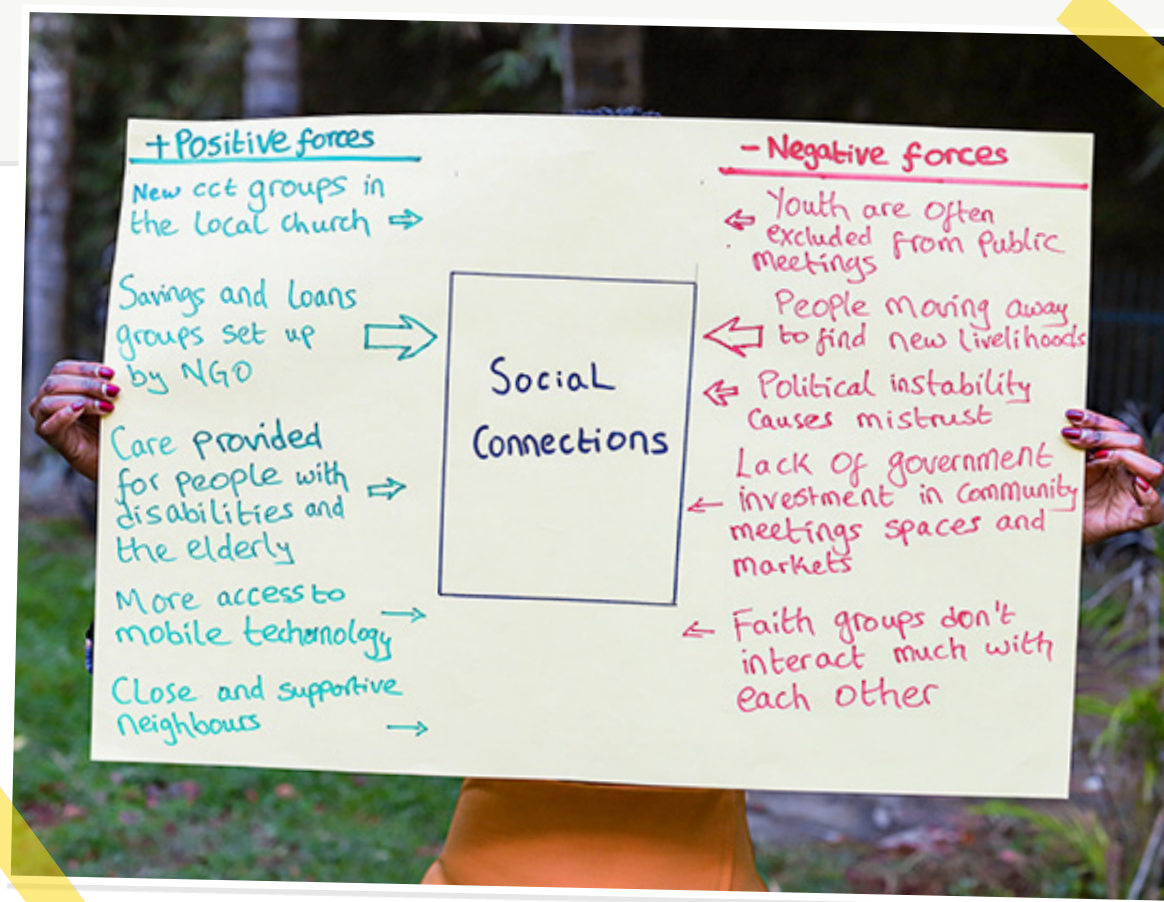 + Positive forces
New cct groups in
the local church
Savings and Loans
groups set up
by NGO
Care provided
for people with
disabilities and
the elderly
More access to
mobile techornology
Close and supportive
neighbours
Social
Connections
- Negative forces
Youth are often
excluded from public
meetings
People moving away
to find new livelihoods
Political instability
causes mistrust
Lack of government
investment in community
meetings spaces and
markets
Faith groups don't
interact much with
each other